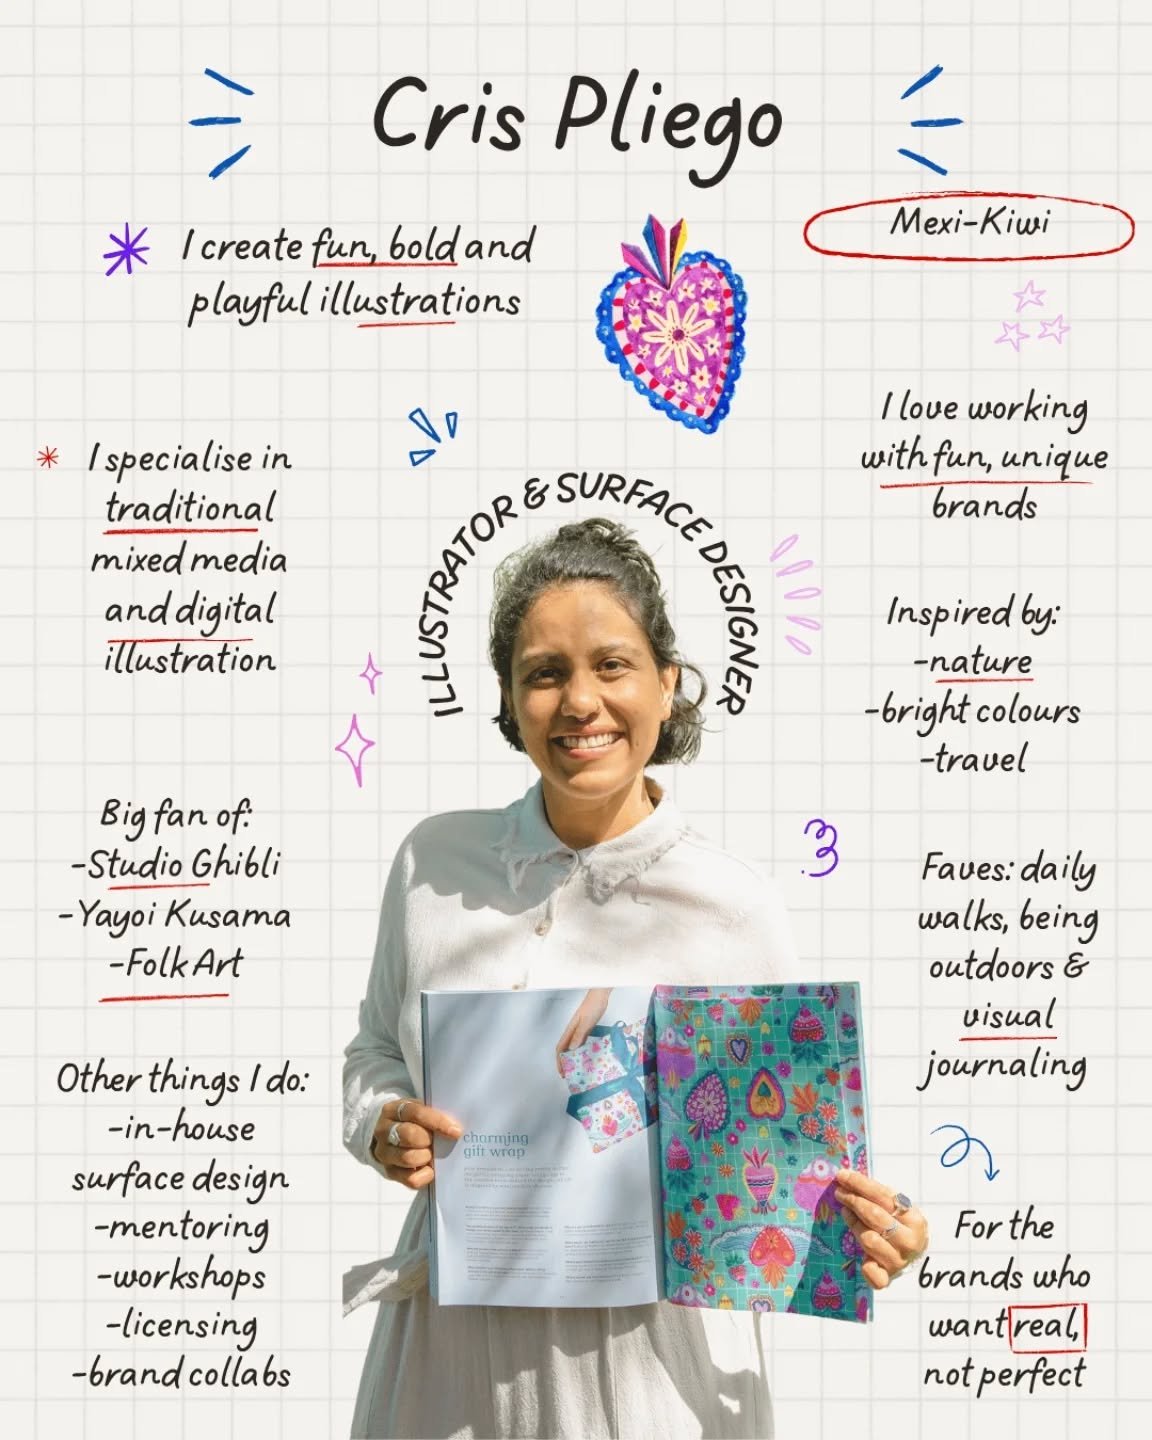 Cris Pliego
Mexi-Kiwi
I create fun, bold and
playful illustrations
I specialise in
traditional
mixed media
and digital
illustration
ILLUSTRATOR & SURFACE DESIGNER
I love working
with fun, unique
brands
Inspired by:
-nature
-bright colours
-travel
Big fan of:
-Studio Ghibli
-Yayoi Kusama
-Folk Art
Faves: daily
walks, being
outdoors &
visual
journaling
Other things I do:
-in-house
surface design
-mentoring
-workshops
-licensing
-brand collabs
charming
gift wrap
For the
brands who
want real,
not perfect